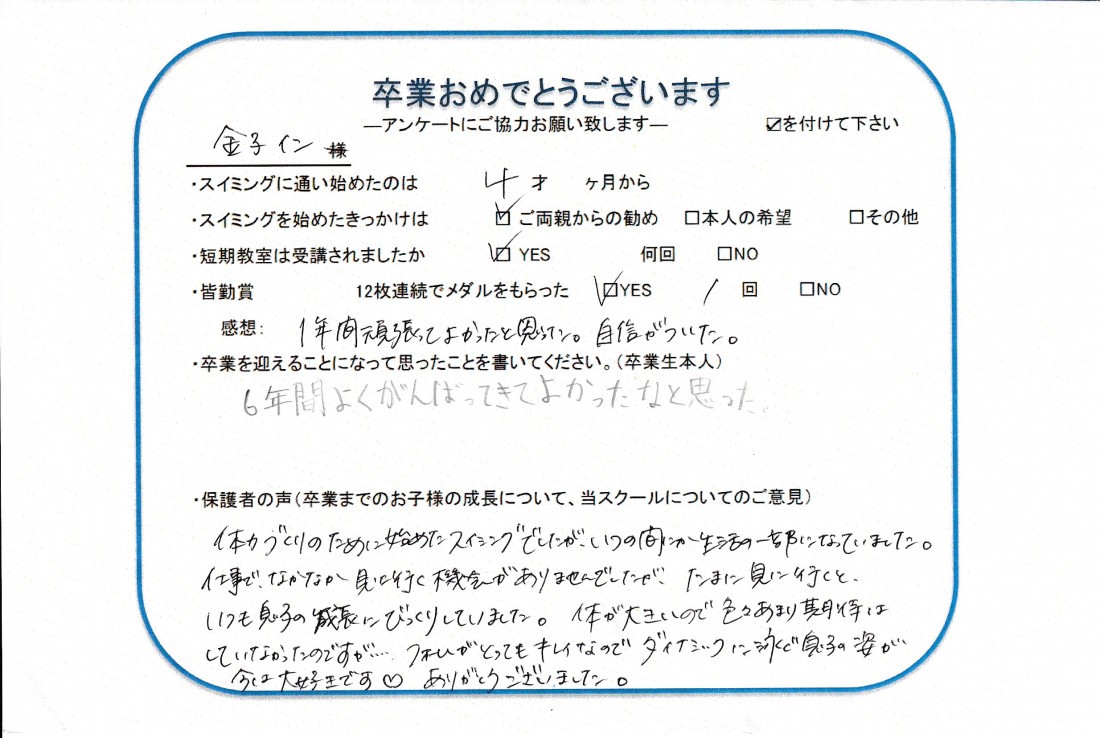 卒業おめでとうございます
―アンケートにご協力お願い致します― ☑を付けて下さい
金子イン 様
・スイミングに通い始めたのは 4 才 ヶ月から
・スイミングを始めたきっかけは ☑ご両親からの勧め □本人の希望 □その他
・短期教室は受講されましたか ☑YES 何回 □NO
・皆勤賞 12枚連続でメダルをもらった ☑YES 1 回 □NO
感想: 1年間頑張ってよかったと思った。自信がついた。
・卒業を迎えることになって思ったことを書いてください。(卒業生本人)
6年間よくがんばってきてよかったなと思った。
・保護者の声(卒業までのお子様の成長について、当スクールについてのご意見)
体力づくりのために始めたスイミングでしたが、いつの間にか生活の一部になっていました。
仕事で、なかなか見に行く機会がありませんでしたが、たまに見に行くと、
いつも息子の成長にびっくりしていました。体が大きいので色々あまり期待は
していなかったのですが…、フォームがとってもキレイなのでダイナミックに泳ぐ息子の姿が
今は大好きです♡ ありがとうございました。